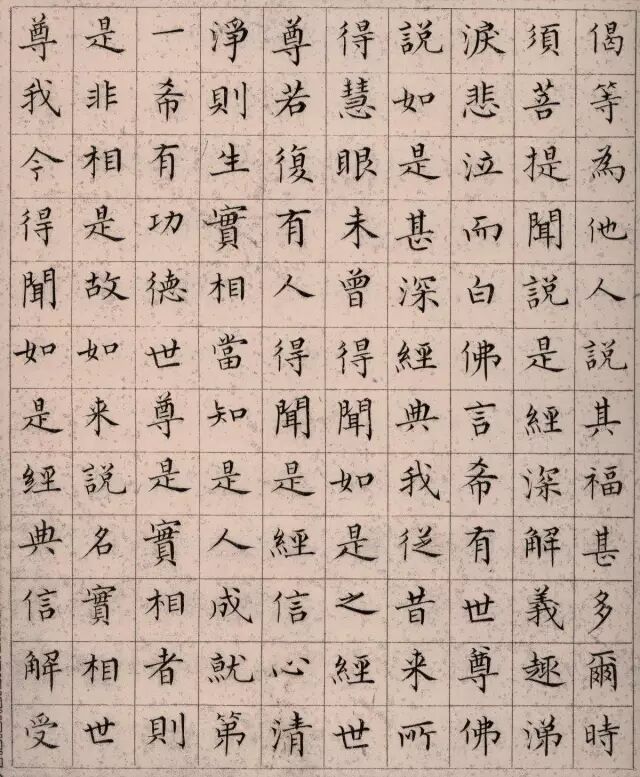 偈等為他人說其福甚多爾時
須菩提聞說是經深解義趣涕
淚悲泣而白佛言希有世尊佛
說如是甚深經典我從昔来所
得慧眼未曾得聞如是之經世
尊若復有人得聞是經信心清
淨則生實相當知是人成就第
一希有功德世尊是實相者則
是非相是故如来說名實相世
尊我今得聞如是經典信解受